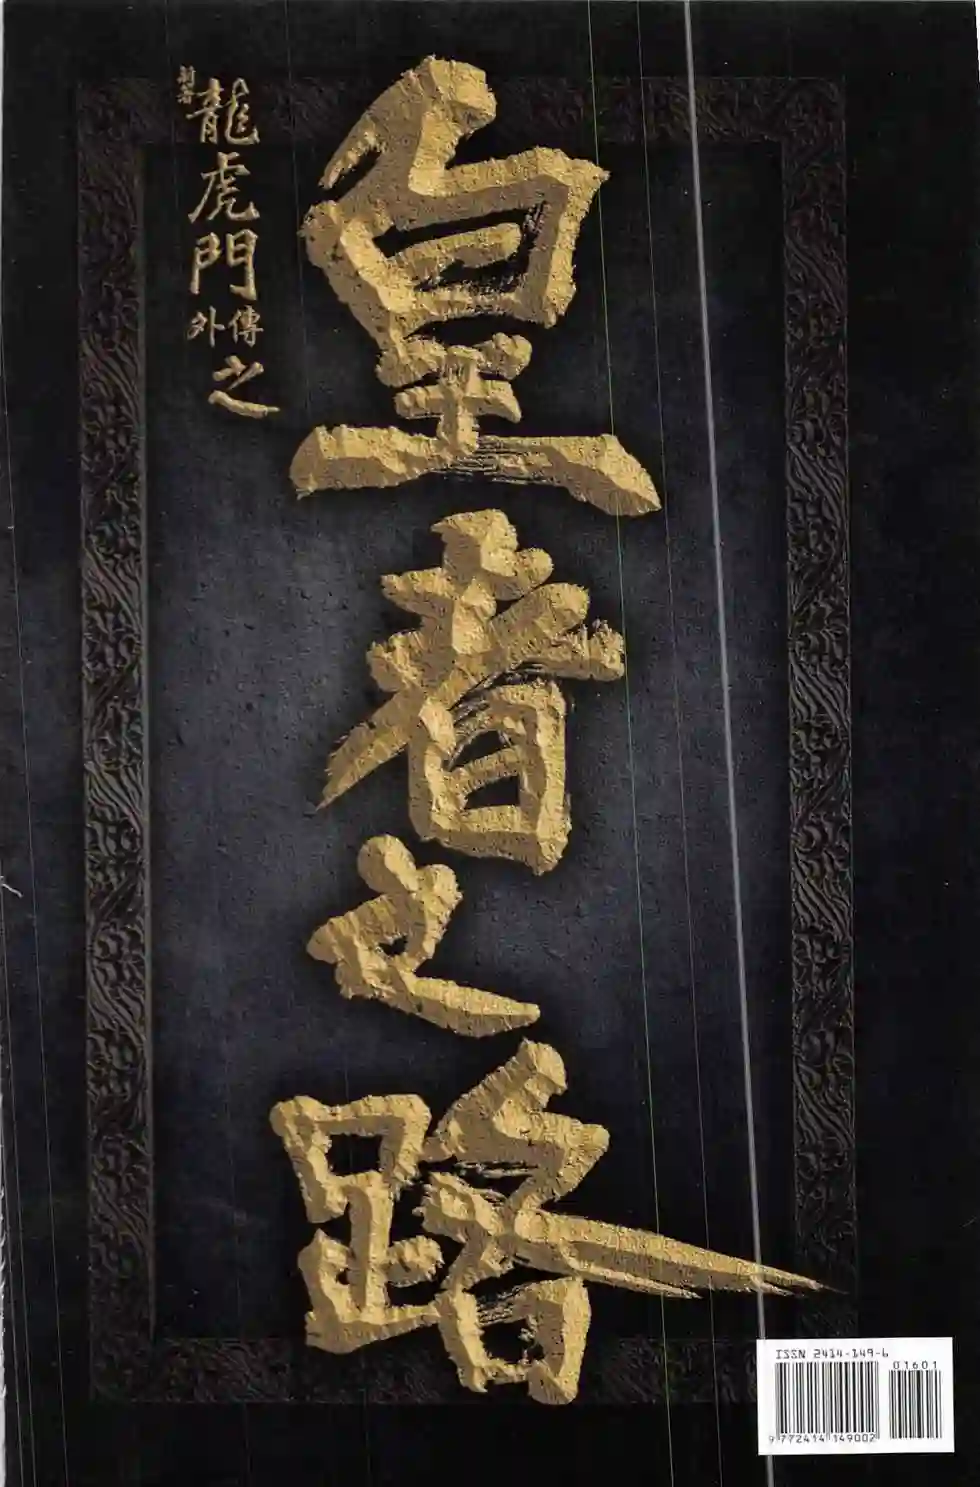 新著
龍虎門
外傳
之
皇者之路
ISSN 2414-149-6
01601
9 772414 149002